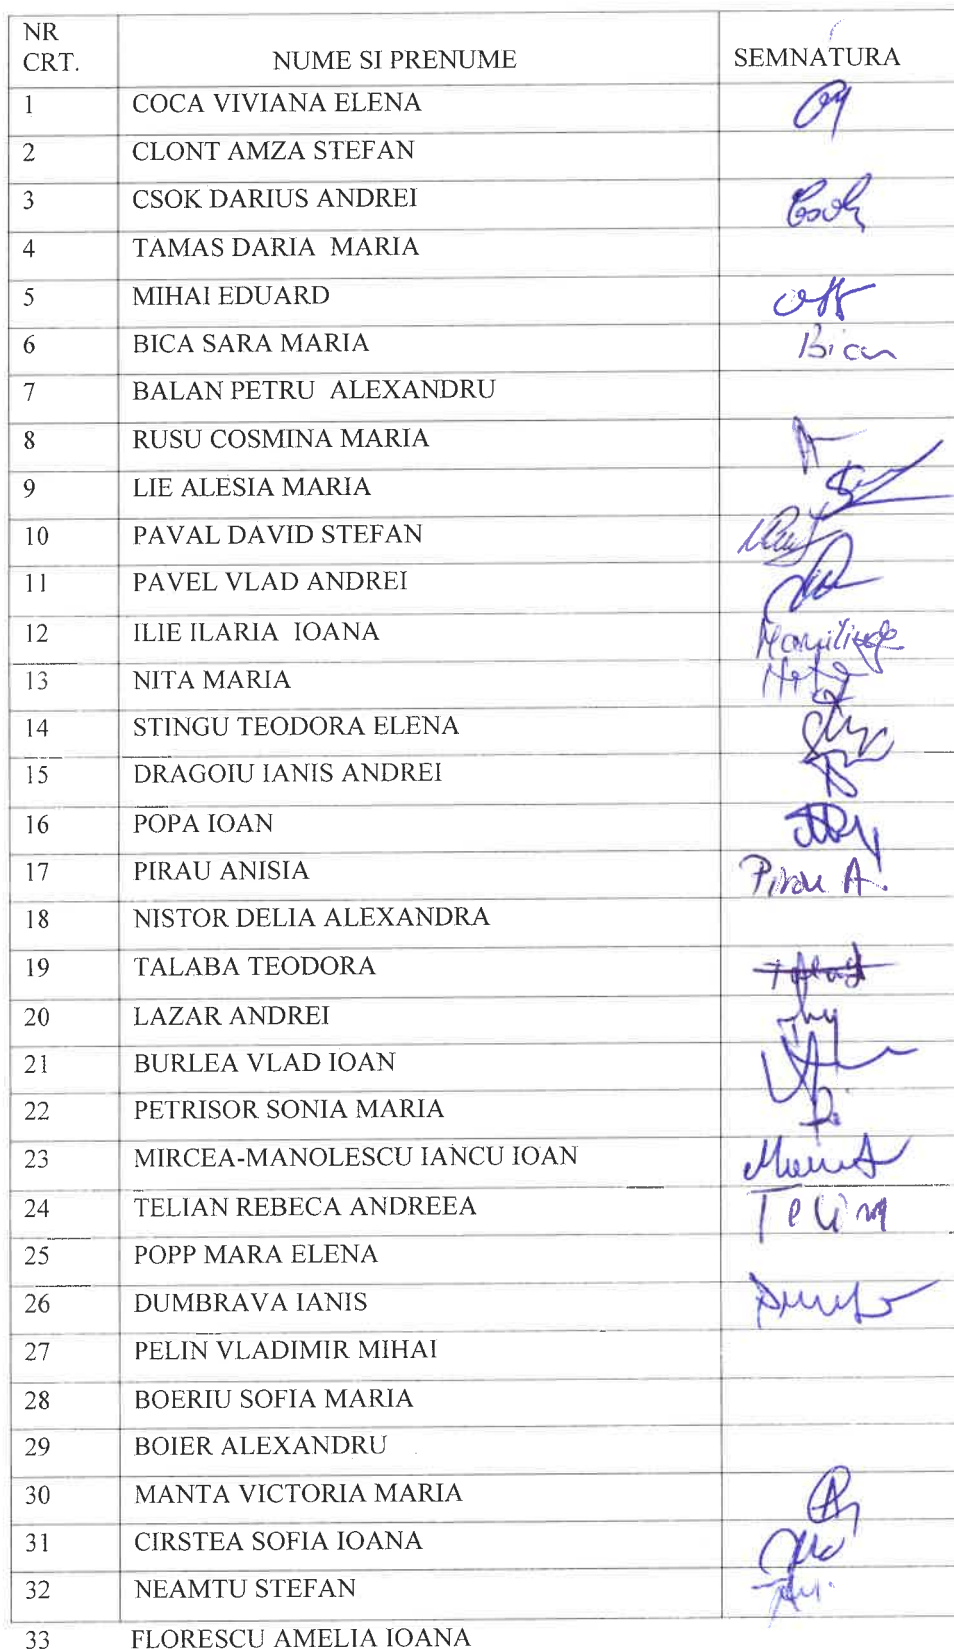 NR
CRT. NUME SI PRENUME SEMNATURA
1 COCA VIVIANA ELENA
2 CLONT AMZA STEFAN
3 CSOK DARIUS ANDREI Csok
4 TAMAS DARIA MARIA
5 MIHAI EDUARD
6 BICA SARA MARIA Bica
7 BALAN PETRU ALEXANDRU
8 RUSU COSMINA MARIA
9 LIE ALESIA MARIA
10 PAVAL DAVID STEFAN
11 PAVEL VLAD ANDREI
12 ILIE ILARIA IOANA
13 NITA MARIA
14 STINGU TEODORA ELENA
15 DRAGOIU IANIS ANDREI
16 POPA IOAN
17 PIRAU ANISIA Pirau A.
18 NISTOR DELIA ALEXANDRA
19 TALABA TEODORA
20 LAZAR ANDREI
21 BURLEA VLAD IOAN
22 PETRISOR SONIA MARIA
23 MIRCEA-MANOLESCU IANCU IOAN
24 TELIAN REBECA ANDREEA
25 POPP MARA ELENA
26 DUMBRAVA IANIS
27 PELIN VLADIMIR MIHAI
28 BOERIU SOFIA MARIA
29 BOIER ALEXANDRU
30 MANTA VICTORIA MARIA
31 CIRSTEA SOFIA IOANA
32 NEAMTU STEFAN
33 FLORESCU AMELIA IOANA